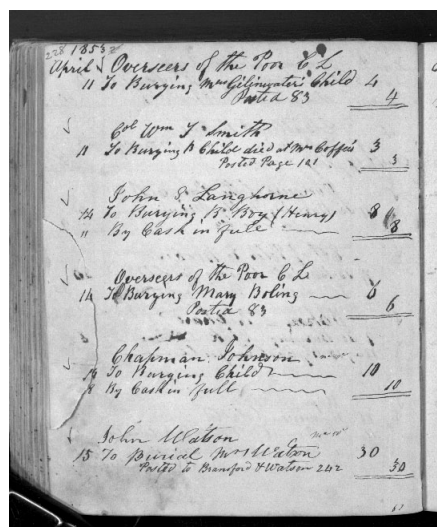 228 1853
April Overseers of the Poor C L
11 To Burying Mrs Gilinwater's Child 4
Posted 83 4
Col Wm T. Smith
11 To Burying B Child died at Mrs Coffee 3
Posted Page 121 3
John S. Langhorne
14 To Burying B Boy (Henry) 8
" By Cash in full 8
Overseers of the Poor C L
14 To Burying Mary Boling 6
Posted 83 6
Chapman Johnson
To Burying Child 10
By Cash in full 10
John Watson
15 To Burial Mrs Watson 30
Posted to Bransford & Watson 242 30